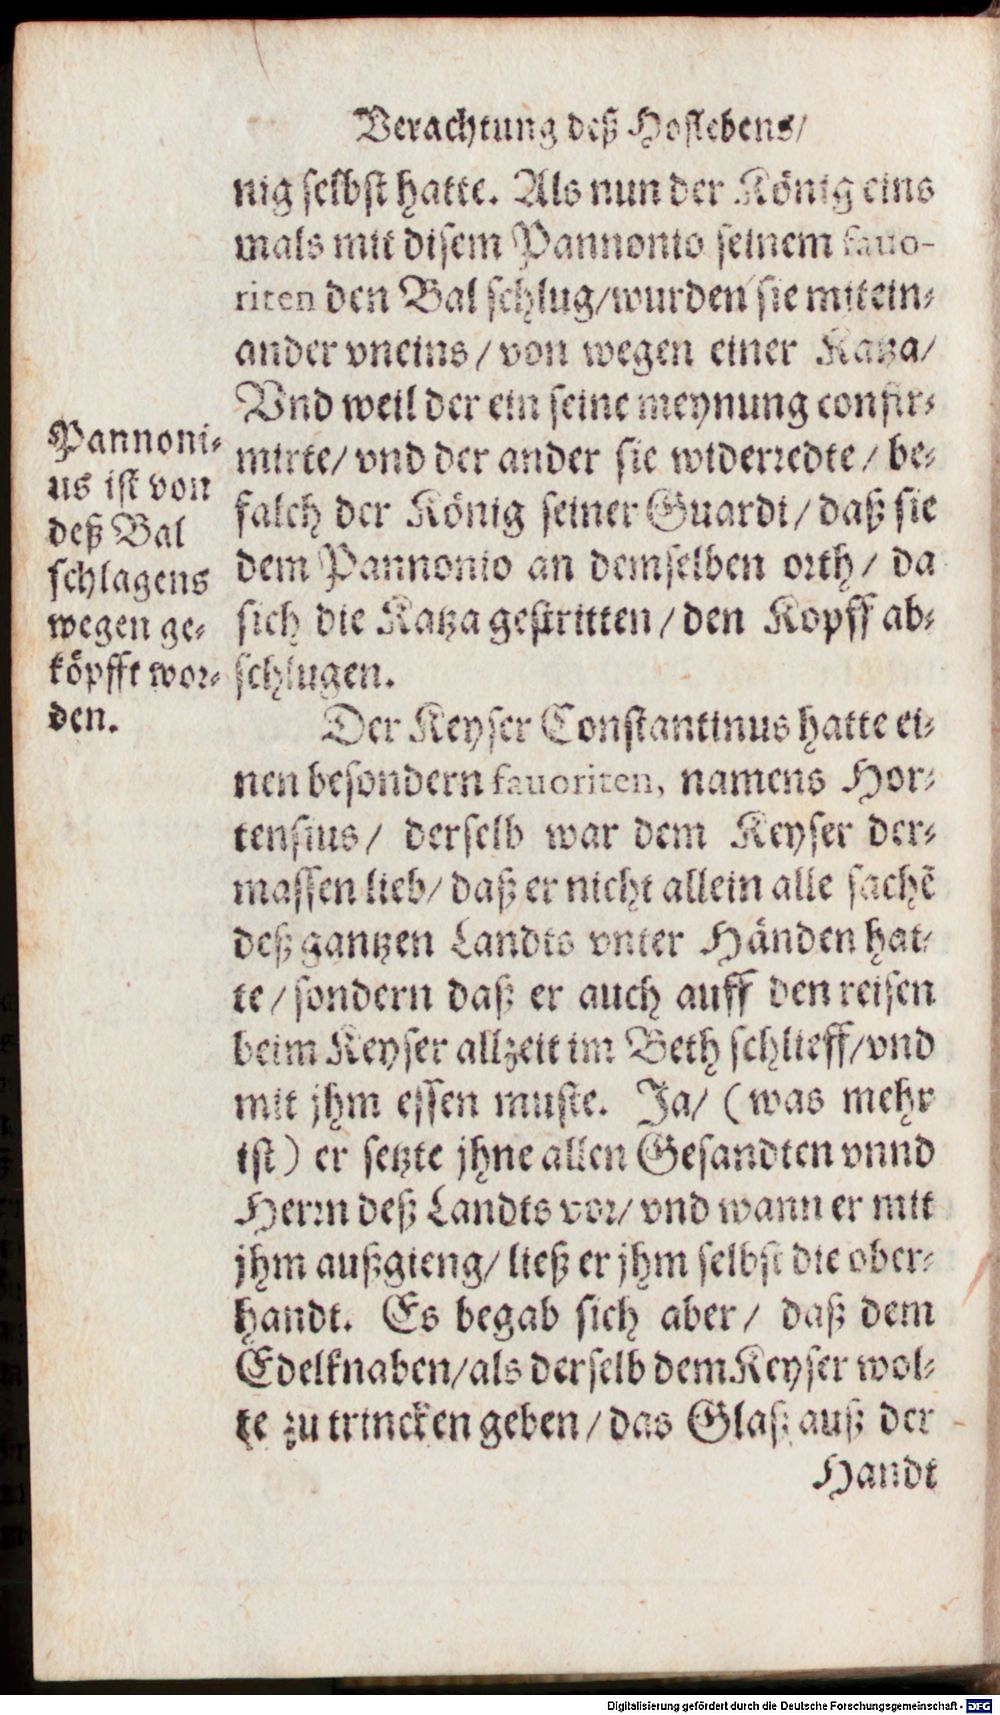 Verachtung deß Hoflebens/
nig selbst hatte. Als nun der König eins
mals mit disem Pannonio seinem fauo-
riten den Bal schlug/wurden sie mitein-
ander vneins/ von wegen einer Katza/
Vnd weil der ein seine meynung confir-
mirte/ vnd der ander sie widerredte/ be-
falch der König seiner Guardi/ daß sie
dem Pannonio an demselben orth/ da
sich die Katza gestritten/ den Kopff ab-
schlugen.
Pannoni-
us ist von
deß Bal
schlagens
wegen ge-
köpfft wor-
den.
Der Keyser Constantinus hatte ei-
nen besondern fauoriten, namens Hor-
tensius/ derselb war dem Keyser der-
massen lieb/ daß er nicht allein alle sachẽ
deß gantzen Landts vnter Händen hat-
te/ sondern daß er auch auff den reisen
beim Keyser allzeit im Beth schlieff/vnd
mit jhm essen muste. Ja/ (was mehr
ist) er setzte jhne allen Gesandten vnnd
Herrn deß Landts vor/ vnd wann er mit
jhm außgieng/ ließ er jhm selbst die ober-
handt. Es begab sich aber/ daß dem
Edelknaben/als derselb dem Keyser wol-
te zu trincken geben/ das Glaß auß der
Handt
Digitalisierung gefördert durch die Deutsche Forschungsgemeinschaft - DFG